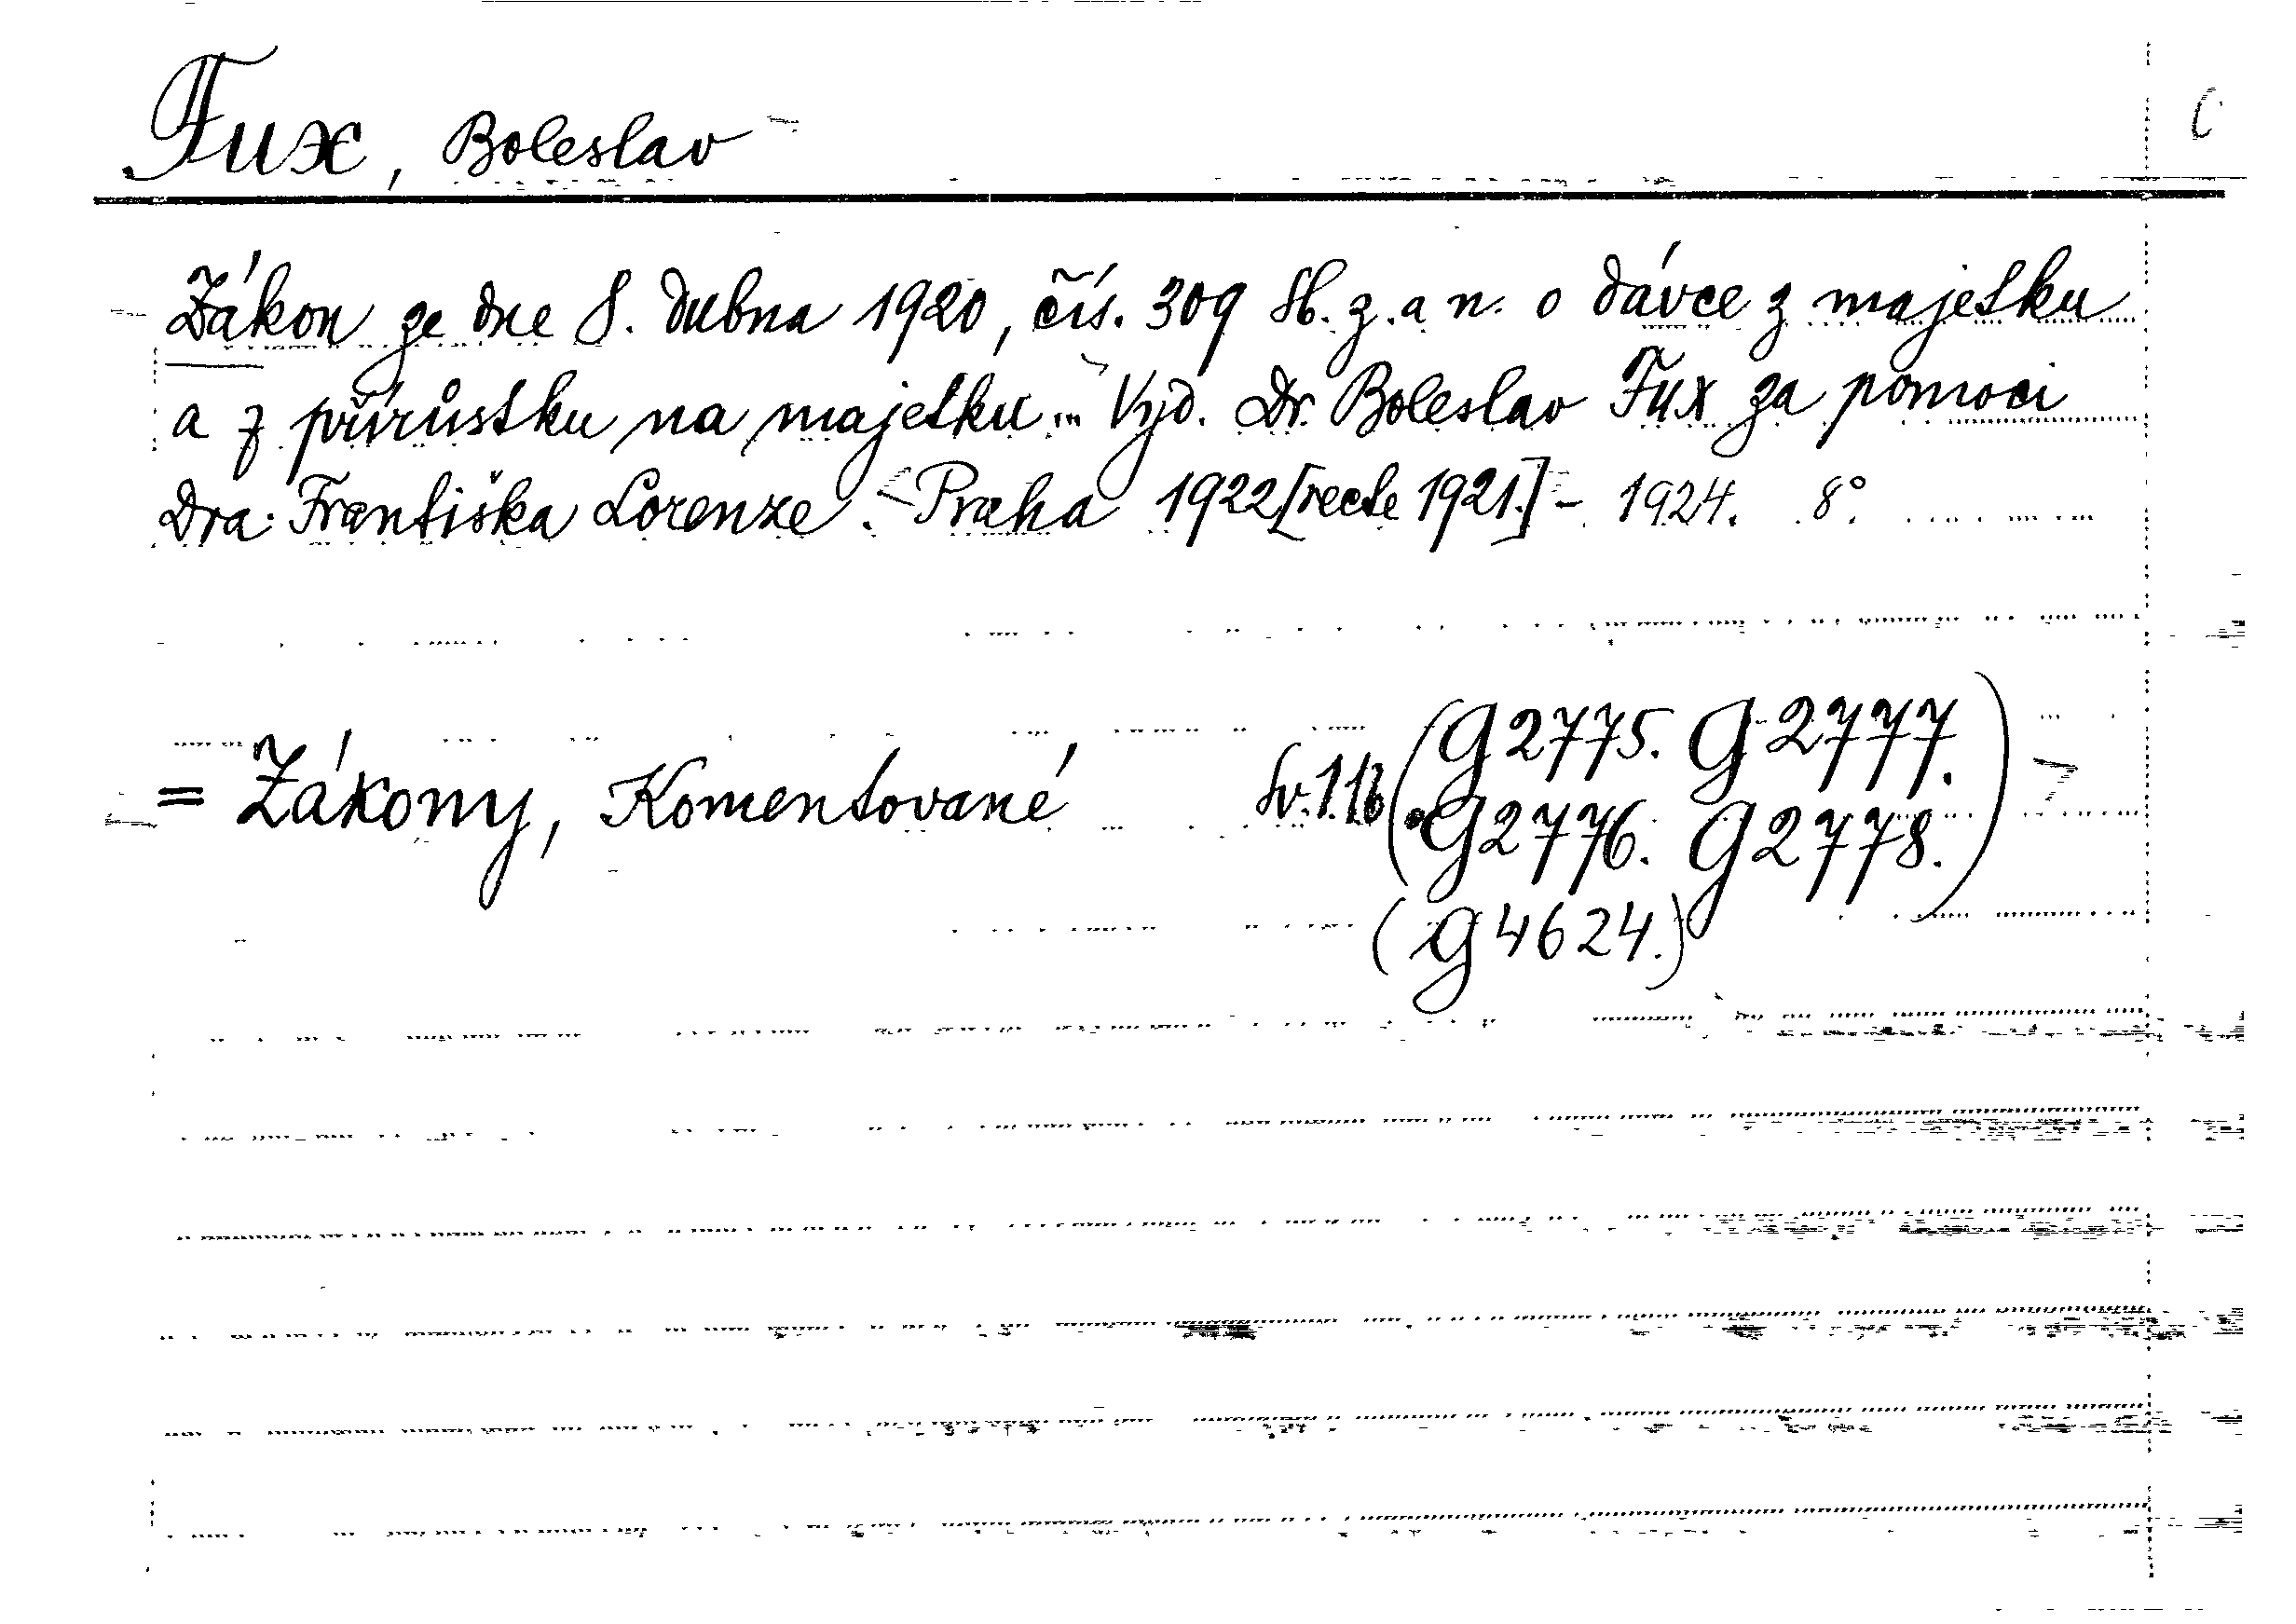 Fux, Boleslav
Zákon ze dne 8. dubna 1920, čís. 309 Sb. z. a n. o dávce z majetku
a z přírůstku na majetku... Vyd. Dr. Boleslav Fux za pomoci
Dra. Františka Lorenze. - Praha 1922 [recte 1921.] - 1924. 8°.
= Zákony, Komentované Sv. (G 2775. G 2777.
G 2776. G 2778.)
(G 4624.)